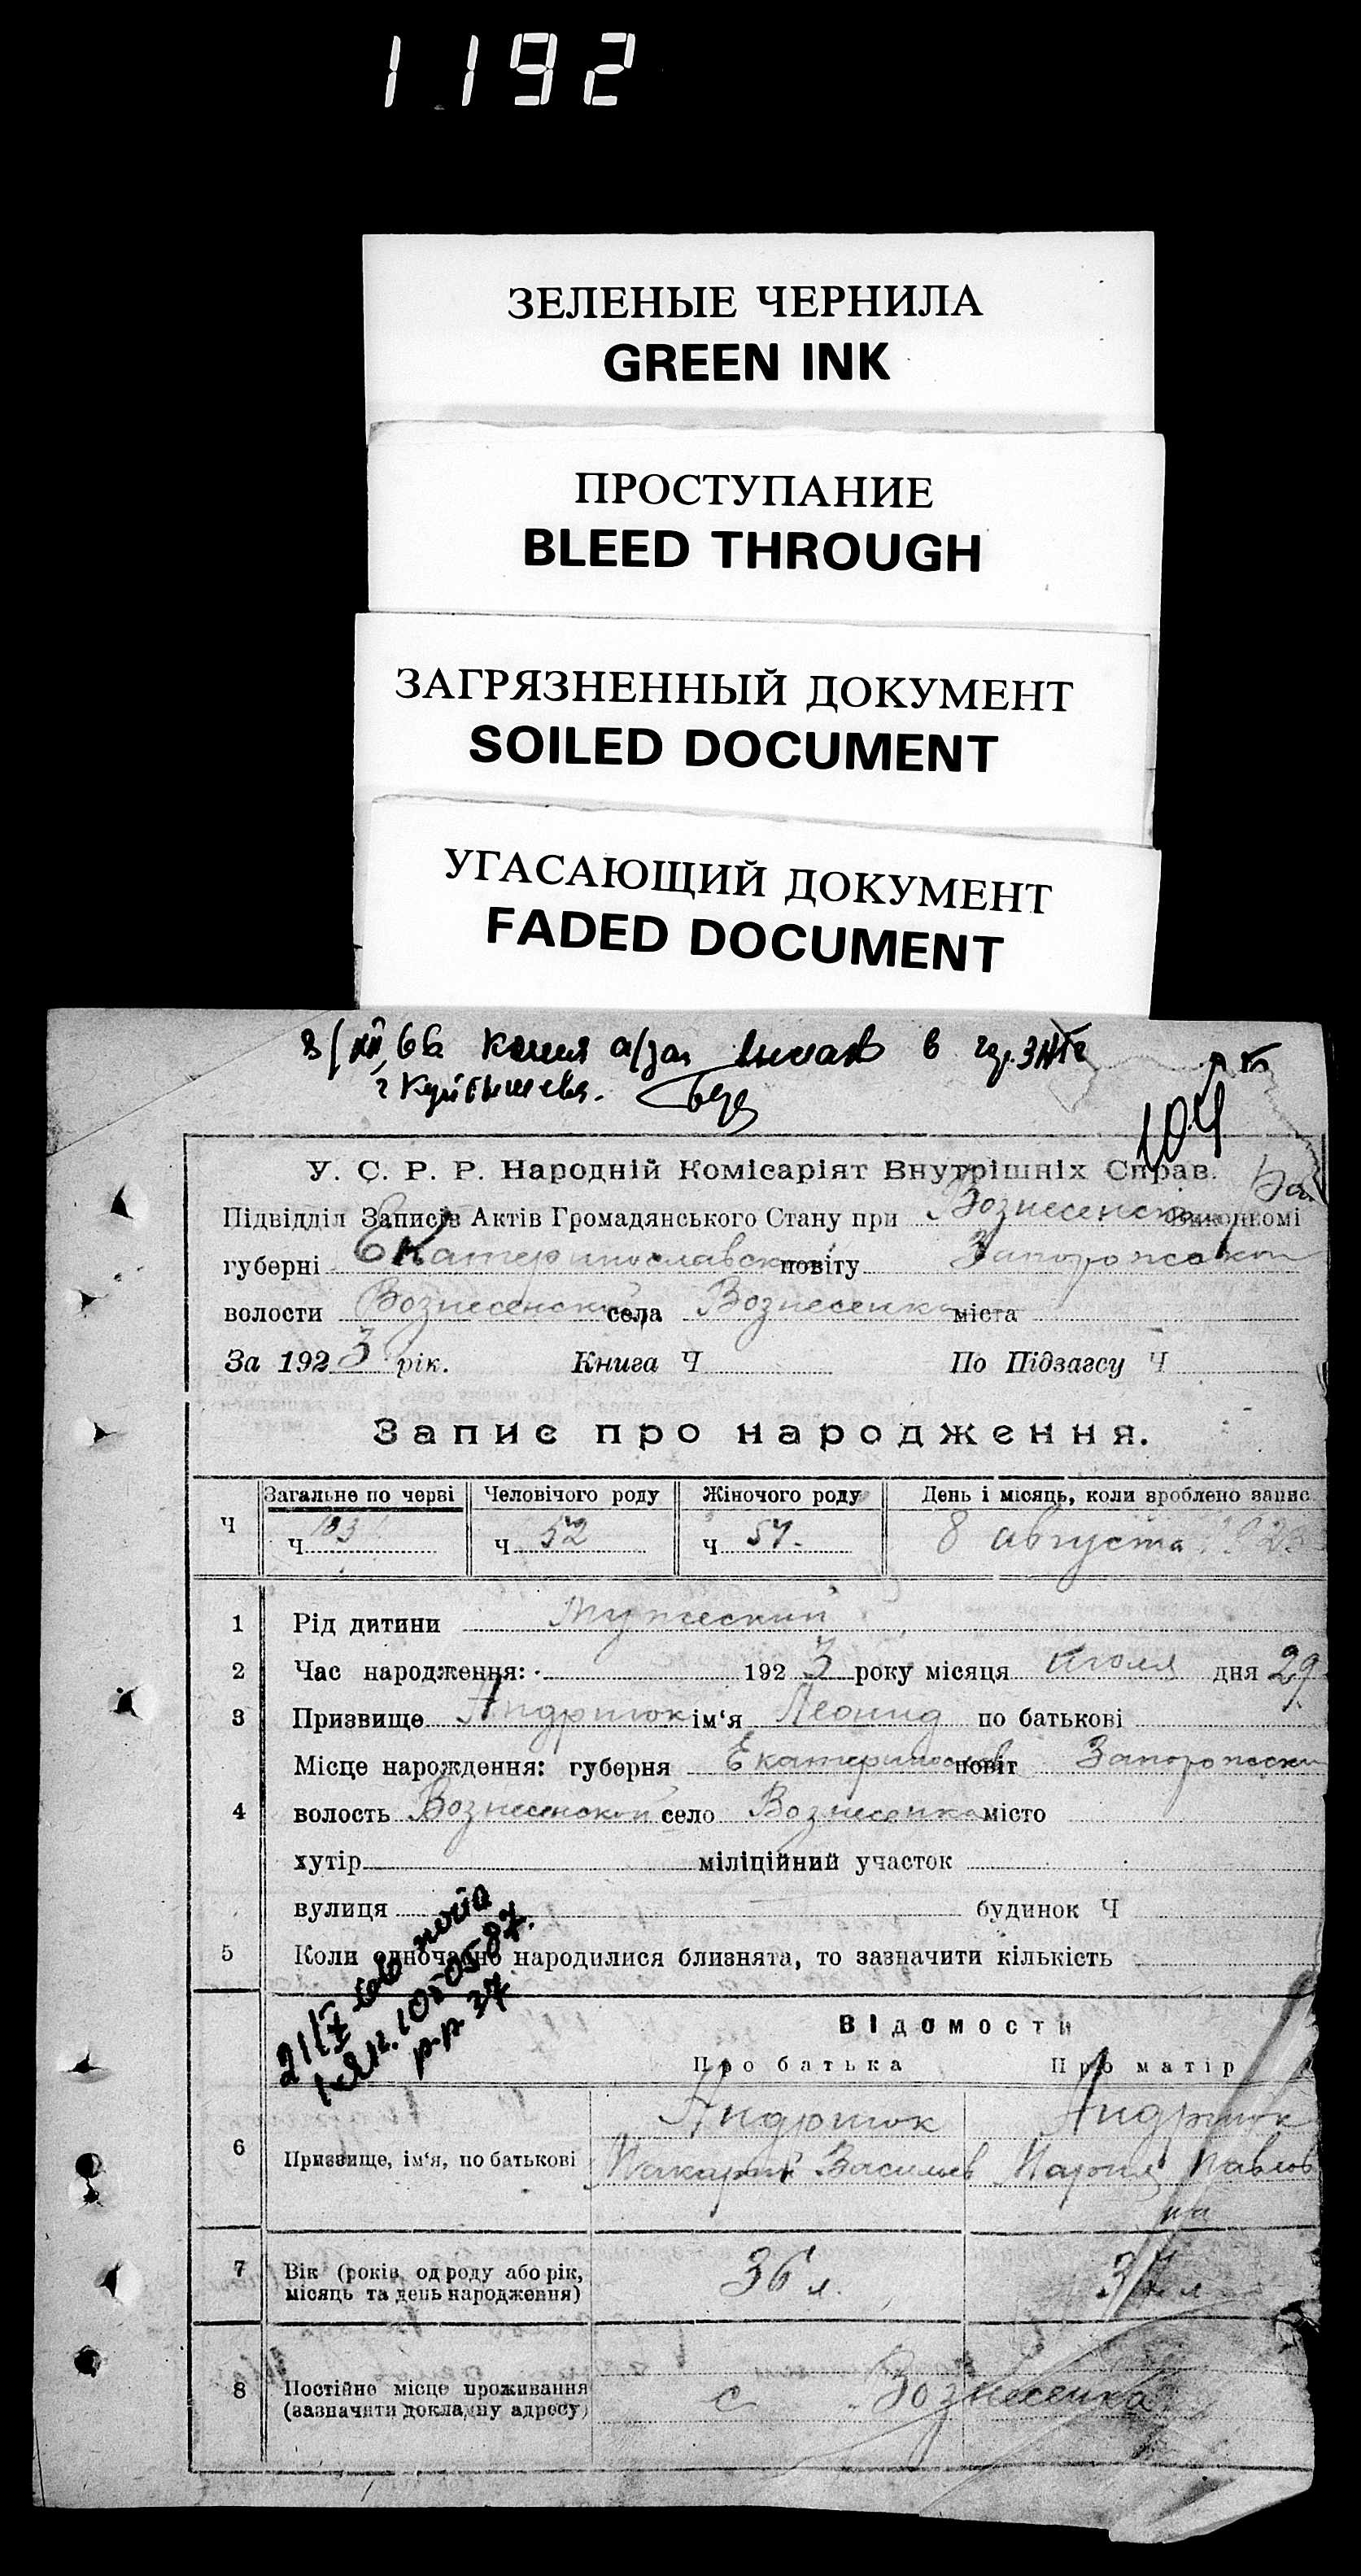 1192
ЗЕЛЕНЫЕ ЧЕРНИЛА
GREEN INK
ПРОСТУПАНИЕ
BLEED THROUGH
ЗАГРЯЗНЕННЫЙ ДОКУМЕНТ
SOILED DOCUMENT
УГАСАЮЩИЙ ДОКУМЕНТ
FADED DOCUMENT
66 копия а/за в
г Куйбышева.
104
У. С. Р. Р. Народній Комісаріят Внутрішніх Справ.
Підвідділ Записів Актів Громадянського Стану при Вознесенском Виконкомі
губерні Екатеринославской повіту Запорожской
волости Вознесенской села Вознесенка міста
За 1923 рік. Книга Ч По Підзагсу Ч
Запис про народження.
Ч Загальне по черві Ч 103 Человічого роду Ч 52 Жіночого роду Ч 51. День і місяць, коли зроблено запис 8 августа 1923
1 Рід дитини Мужеский
2 Час народження: 1923 року місяця Июля дня 29
3 Призвище Андриюк ім'я Леонид по батькові
Місце нарождення: губерня Екатеринослав повіт Запорожски
4 волость Вознесенской село Вознесенка місто
хутір міліційний участок
вулиця будинок Ч
5 Коли одночасно народилися близнята, то зазначити кількість
Відомости
Про батька Про матір
6 Призвище, ім'я, по батькові Андриюк Макарий Васильев Андриюк Мария Павловна
7 Вік (років, од роду або рік, місяць та день народження) 36 л. 34 л
8 Постійне місце проживання (зазначити докладну адресу) с Вознесенка